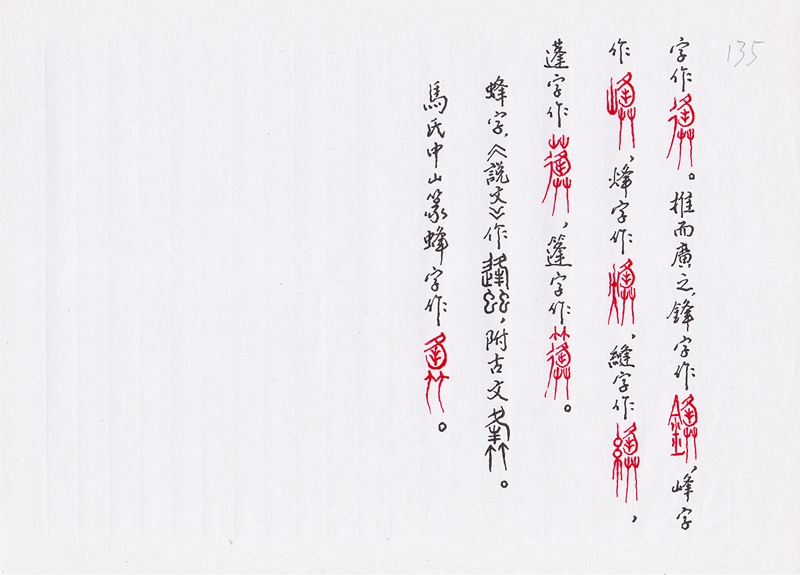 135
字作。推而廣之，鋒字作、峰字
作、烽字作、縫字作，
蓬字作，篷字作。
蜂字，《說文》作，附古文。
馬氏中山篆蜂字作。